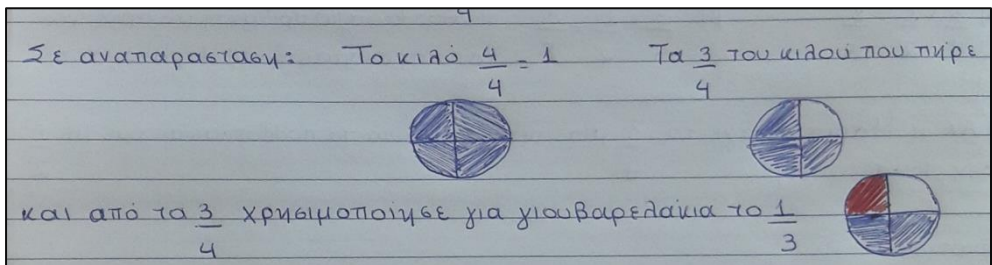 4
Σε αναπαράσταση: Το κιλό 4/4 = 1 Τα 3/4 του κιλού που πήρε
και από τα 3/4 χρησιμοποίησε για γιουβαρελάκια το 1/3